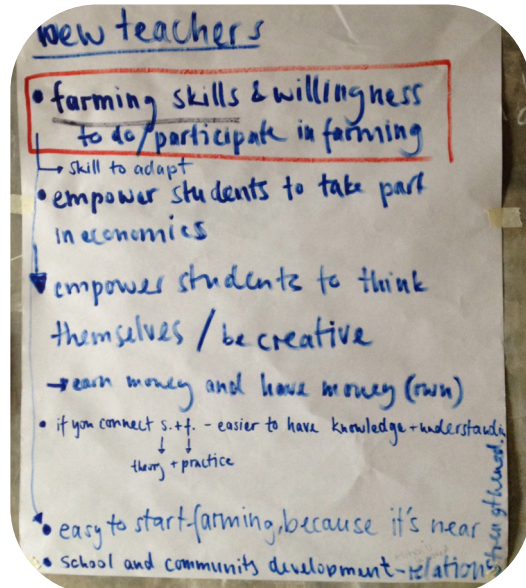 new teachers
• farming skills & willingness
to do/participate in farming
→ skill to adapt
• empower students to take part
in economics
empower students to think
themselves / be creative
→ earn money and have money (own)
• if you connect s.+f. - easier to have knowledge + understandin
↓ ↓
theory + practice
• easy to start farming, because it's near
• school and community development - relations
strengthened.